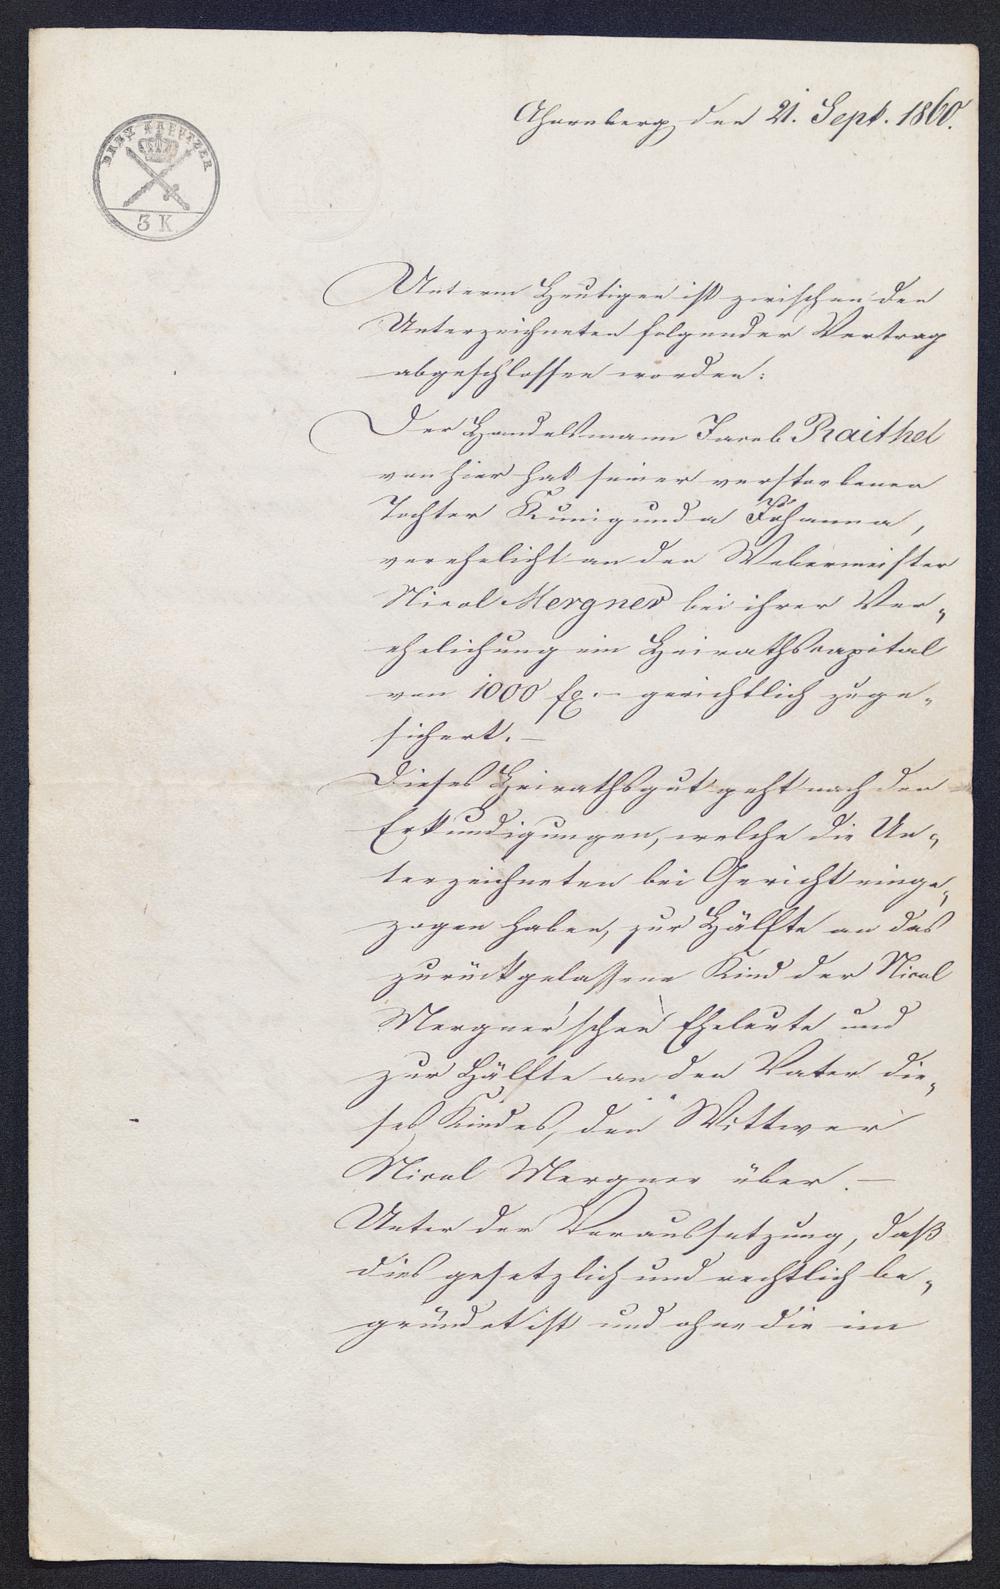 Ahornberg, den 21. Sept. 1860.
DREY KREUTZER
3 K
Unterm Heutigen ist zwischen den
Unterzeichneten folgender Vertrag
abgeschlossen worden:
Der Handelsmann Jacob Raithel
von hier hat seiner verstorbenen
Tochter Kunigunda Johanna,
verehelicht an den Webermeister
Nicol Mergner bei ihrer Ver-
ehelichung ein Heirathscapital
von 1000 fx.- gerichtlich zuge-
sichert.-
Dieses Heirathsgut geht nach den
Erkundigungen, welche die Un-
terzeichneten bei Gericht einge-
zogen haben, zur Hälfte an das
zurückgelassene Kind der Nicol
Mergner'schen Eheleute und
zur Hälfte an den Vater die-
ses Kindes, den Wittwer
Nicol Mergner über.-
Unter der Voraussetzung, daß
dies gesetzlich und rechtlich be-
gründet ist und ohne die im